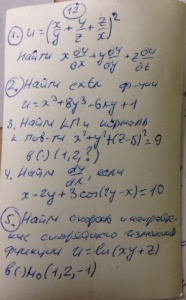 12
1. u = (x/y + y/z + z/x)²
Найти x ∂u/∂x + y ∂u/∂y + z ∂u/∂z
2. Найти экстр. ф-ции
u = x³ + 8y³ - 6xy + 1
3. Найти КП и нормаль
к пов-ти x² + y² + (z-5)² = 9
в (·) (1, 2, ?)
4. Найти dy/dx, если
x - 2y + 3cos(2y - x) = 10
5. Найти скорость и направле-
ние скорейшего изменения
функции u = ln(xy + z)
в (·) M₀ (1, 2, -1)